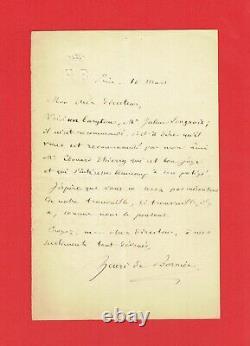 10 Mars
Mon cher Directeur,
Voici un baryton, Mr Jules
il m'est recommandé, c'est-à-dire qu'il
vous est recommandé par mon ami
Mr Edouard Thierry qui est bon juge
et qui s'intéresse beaucoup à son protégé
J'espère que vous ne serez pas mécontent
de notre trouvaille, si trouvaille, il y
a, comme nous le pensons.
Croyez, mon cher Directeur, à mes
sentiments tout dévoués,
Henri de Bornier